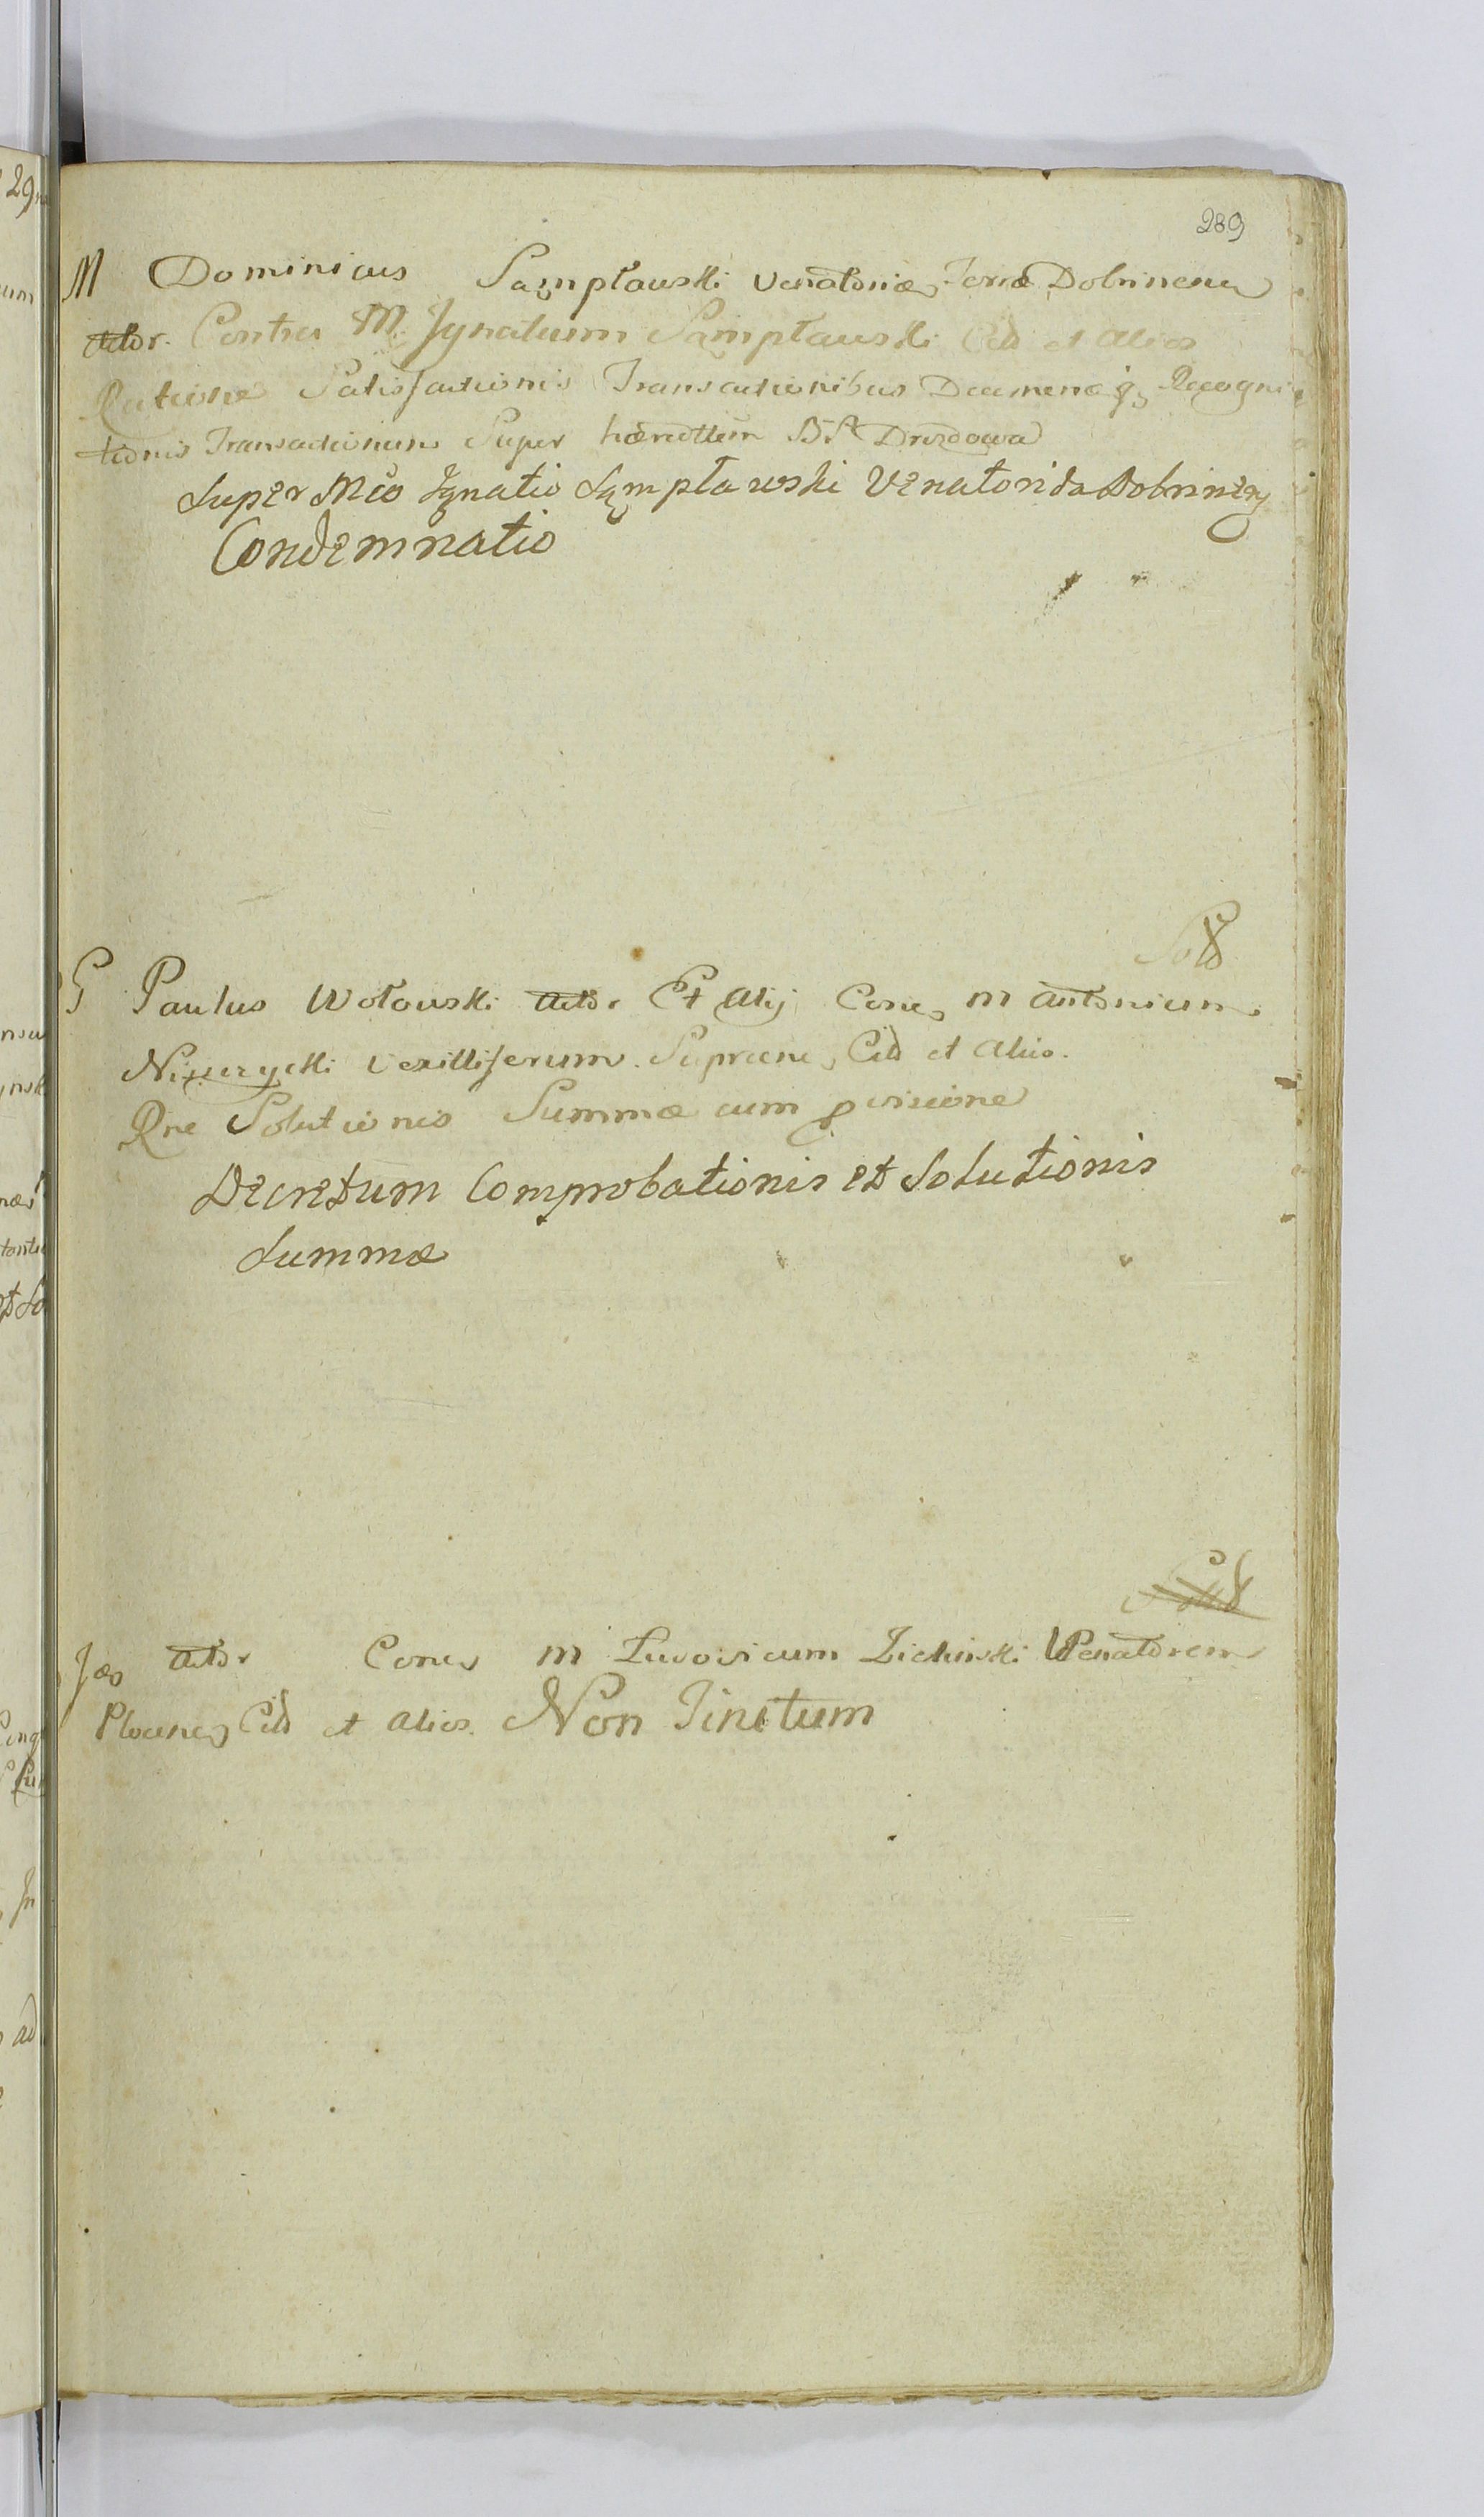 289
M Dominicus Sąmpławski Venatorić Terræ Dobrinen
Actor. Contra M. Ignatium Sąmpławski Citd et Alios
Ratione Satisfactionis Transactionibus Recogni
tionis Transactionum Super hæredttem Drozdowa
Super Mco Ignatio Sąmpławski Venatorida Dobrinen
Condemnatio
Sold
G Paulus Wołowski Actor Et Alij Conta M Antonium
Vexilliferum Citd et Alios.
Rne Solutionis Summæ cum pvisione
Decretum Comprobationis et Solutionis
Summæ
Jdo Actor Conta M Ludovicum Zieliński Venatorem
Plocens Citd et Alios. Non Tinctum